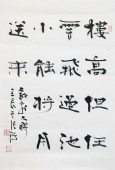 樓高但任
雲飛過池
小能将月
送来